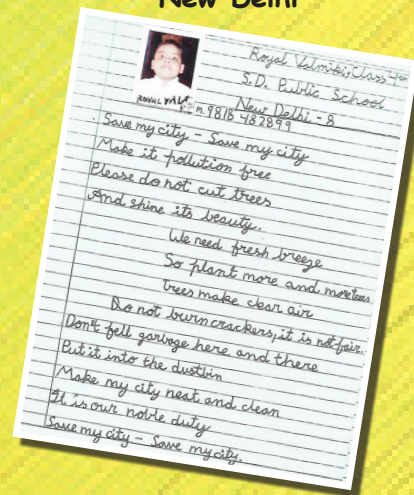 New Delhi
Royal Valmiki, Class
S.D. Public School
New Delhi - 8
ROYAL
m 9818 482899
Save my city - Save my city
Make it pollution free
Please do not cut trees
And shine its beauty.
We need fresh breeze
So plant more and more trees
trees make clean air
Do not burn crackers, it is not fair.
Don't fell garbage here and there
Put it into the dustbin
Make my city neat and clean
It is our noble duty
Save my city - Save my city.